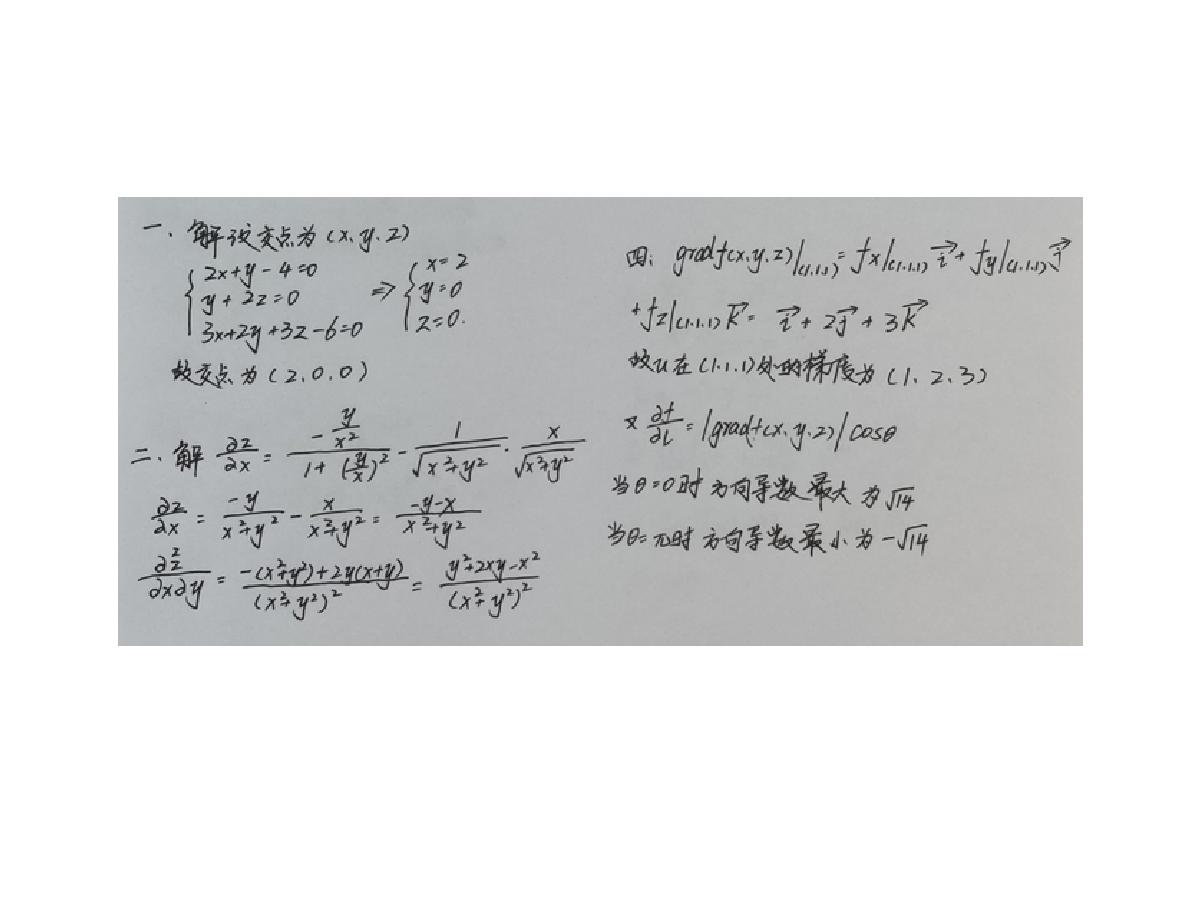 一、解 设交点为 (x, y, z)
{ 2x+y-4=0
y+2z=0
3x+2y+3z-6=0 ⇒ { x=2
y=0
z=0.
故交点为 (2, 0, 0)
二、解 ∂z/∂x = (-y/x²)/(1+(y/x)²) - 1/√(x²+y²) · x/√(x²+y²)
∂z/∂x = -y/(x²+y²) - x/(x²+y²) = (-y-x)/(x²+y²)
∂²z/∂x∂y = (-(x²+y²)+2y(x+y))/(x²+y²)² = (y²+2xy-x²)/(x²+y²)²
四: gradf(x,y,z)|(1,1,1) = fx|(1,1,1) i→ + fy|(1,1,1) j→
+ fz|(1,1,1) k→ = i→ + 2j→ + 3k→
故u在(1,1,1)处的梯度为 (1, 2, 3)
又 ∂f/∂l = |gradf(x,y,z)| cosθ
当θ=0时 方向导数最大为√14
当θ=π时 方向导数最小为-√14